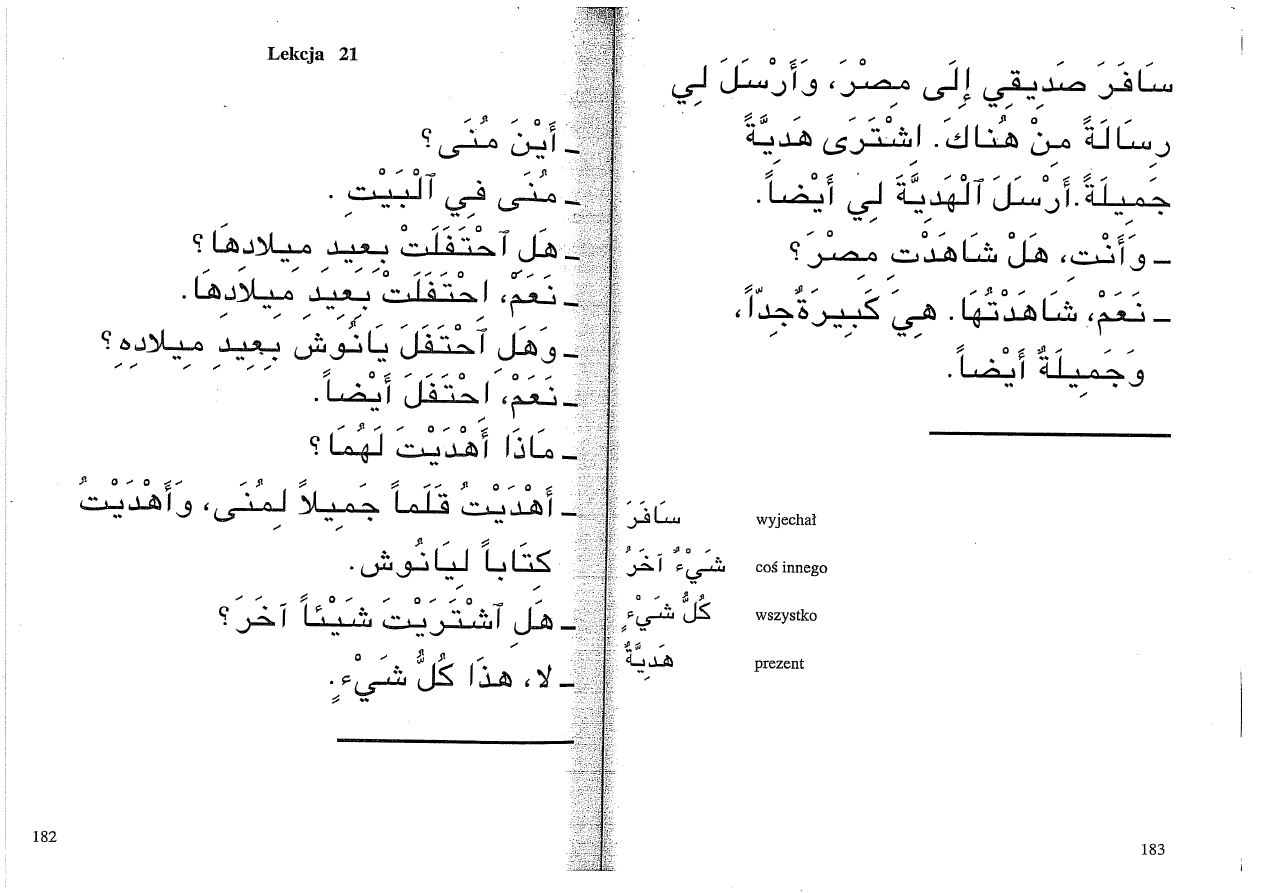 Lekcja 21
ـ أَيْنَ مُنَى؟
ـ مُنَى فِي ٱلْبَيْتِ .
ـ هَلِ ٱحْتَفَلَتْ بِعِيدِ مِيلادِهَا؟
ـ نَعَمْ، احْتَفَلَتْ بِعِيدِ مِيلادِهَا.
ـ وَهَلِ ٱحْتَفَلَ يَانُوش بِعِيدِ مِيلادِهِ؟
ـ نَعَمْ، احْتَفَلَ أَيْضاً.
ـ مَاذَا أَهْدَيْتَ لَهُمَا؟
ـ أَهْدَيْتُ قَلَماً جَمِيلاً لِمُنَى، وَأَهْدَيْتُ
كِتَاباً لِيَانُوش.
ـ هَلِ ٱشْتَرَيْتَ شَيْئاً آخَرَ؟
ـ لا، هذَا كُلُّ شَيْءٍ.
182
سَافَرَ صَدِيقِي إِلَى مِصْرَ، وَأَرْسَلَ لِي
رِسَالَةً مِنْ هُنَاكَ. اشْتَرَى هَدِيَّةً
جَمِيلَةً. أَرْسَلَ ٱلْهَدِيَّةَ لِي أَيْضاً.
ـ وَأَنْتِ، هَلْ شَاهَدْتِ مِصْرَ؟
ـ نَعَمْ، شَاهَدْتُهَا. هِيَ كَبِيرَةٌ جِدّاً،
وَجَمِيلَةٌ أَيْضاً.
سَافَرَ wyjechał
شَيْءٌ آخَرُ coś innego
كُلُّ شَيْءٍ wszystko
هَدِيَّةٌ prezent
183